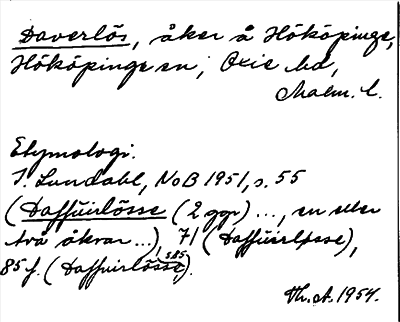 Daverlös, åker å Hököpinge,
Hököpinge sn; Oxie hd,
Malm. l.
Etymologi.
I. Lundahl, NoB 1951, s. 55
(Daffúirlösse (2 ggr) ..., en eller
två åkrar ...), 71 (Daffúerlosse),
85 f. (Daffuirlösse, s 85).
Th. A. 1954.